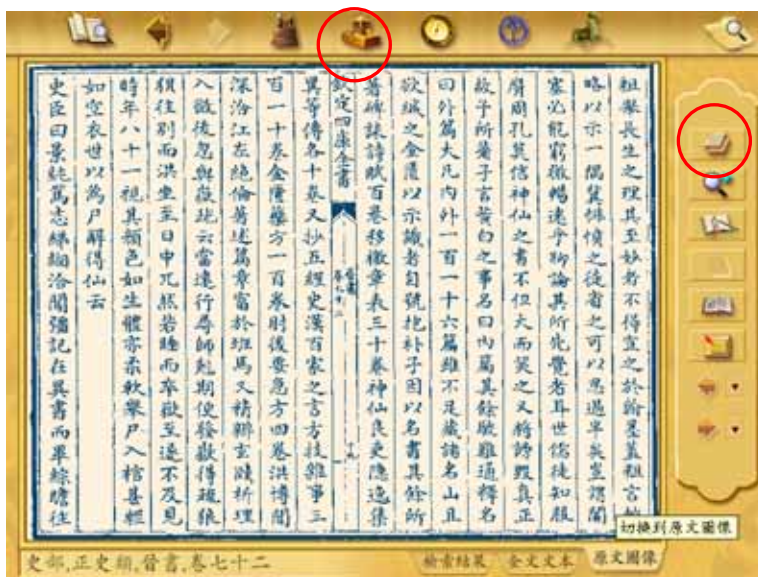 粗舉長生之理其至妙者不得宣之於翰墨蓋粗言
略以示一隅冀悱憤之徒省之可以思過半矣豈謂闇
塞必能窮微暢遠乎聊論其所先覺者耳世儒徒知服
膺周孔莫信神仙之書不但大而笑之又將謗毀真正
故予所著子言黃白之事名曰內篇其餘駁難通釋名
曰外篇大凡內外一百一十六篇雖不足藏諸名山且
欲緘之金匱以示識者自號抱朴子因以名書其餘所
著碑誄詩賦百卷移檄章表三十卷神仙良吏隱逸集
欽定四庫全書
晉書
卷七十二
異等傳各十卷又抄五經史漢百家之言方技雜事三
百一十卷金匱藥方一百卷肘後要急方四卷洪博聞
深洽江左絕倫著述篇章富於班馬又精辯玄賾析理
入微後忽與嶽疏云當遠行尋師剋期便發嶽得疏狼
狽往別而洪坐至日中兀然若睡而卒嶽至遂不及見
時年八十一視其顏色如生體亦柔軟舉尸入棺甚輕
如空衣世以為尸解得仙云
史臣曰景純篤志綈緗洽聞彊記在異書而畢綜瞻往
切換到原文圖像
史部,正史類,晉書,卷七十二
檢索結果
全文文本
原文圖像